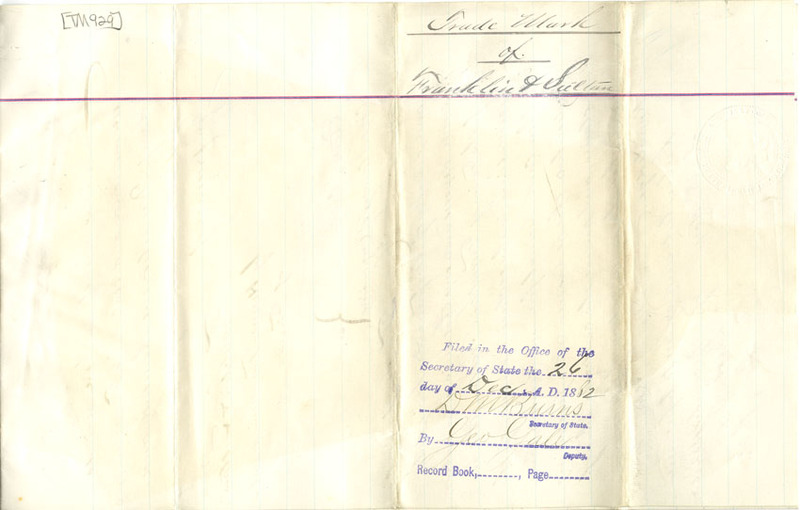 [TM929]
Trade Mark
of
Franklin & Sultan
Filed in the Office of the
Secretary of State the 26
day of Dec A. D. 1882
D M Burns
Secretary of State.
By Geo
Deputy.
Record Book, , Page